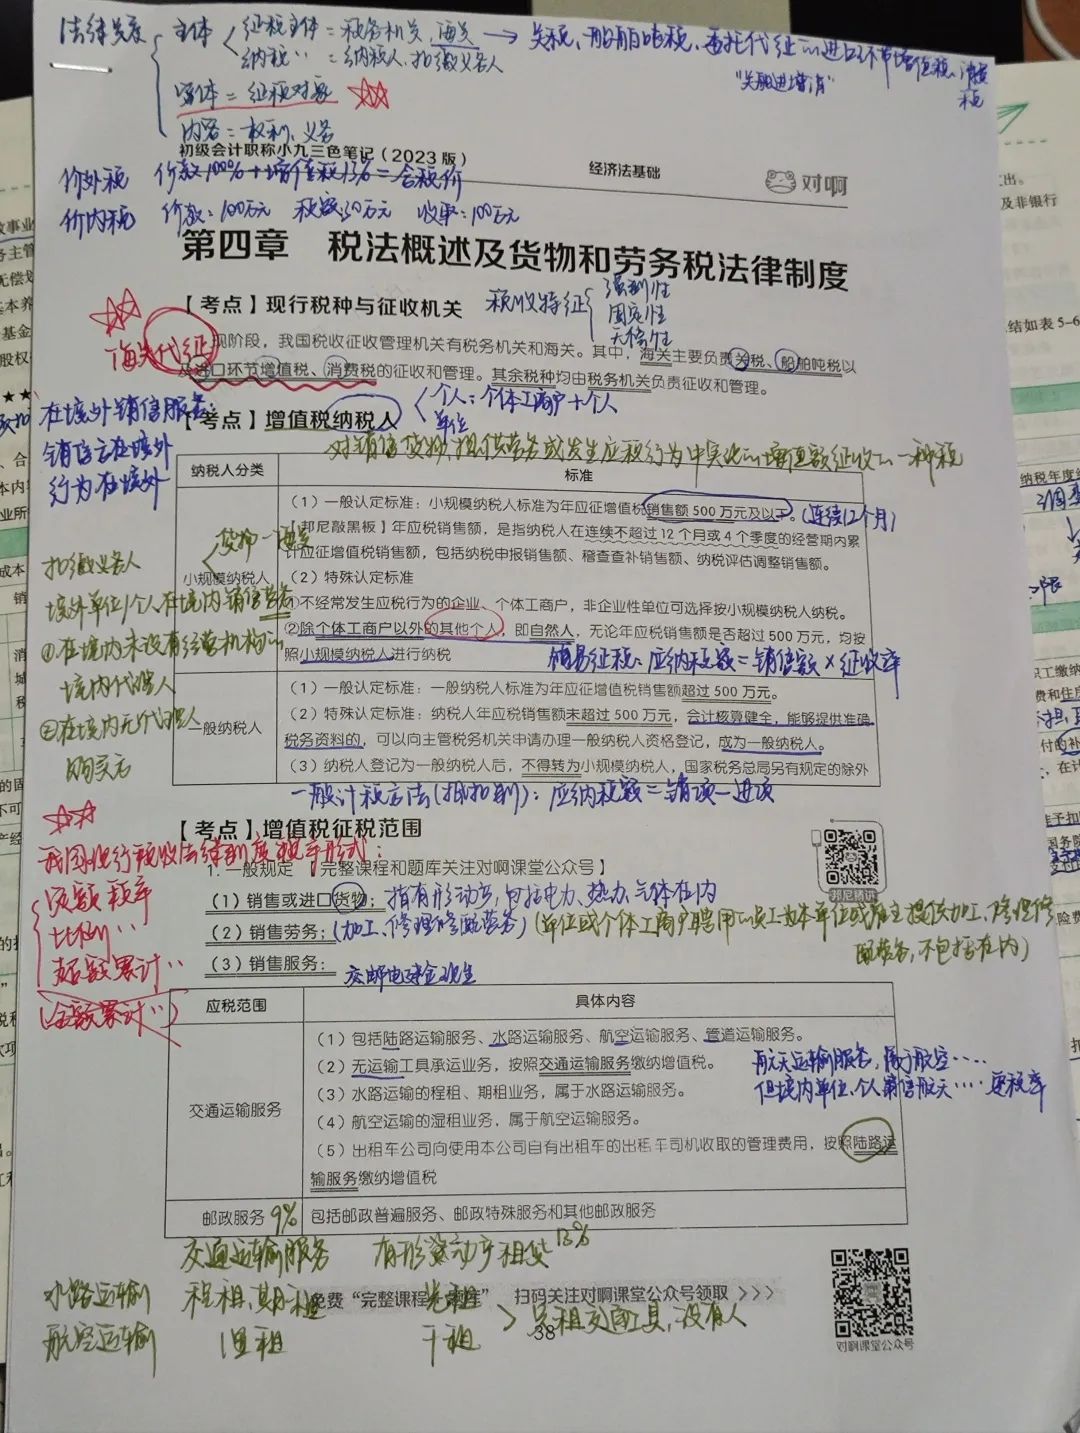 法律关系
主体
征税主体=税务机关、海关 → 关税、船舶吨税、委托代征的进口环节增值税、消费税
纳税〃 =纳税人、扣缴义务人
"关船进增消"
客体=征税对象
内容=权利、义务
初级会计职称小九三色笔记（2023 版）
经济法基础
对啊
价外税 价款100%+增值税13%=含税价
价内税 价款:100万元 税额30万元 收取:100万元
第四章 税法概述及货物和劳务税法律制度
【考点】现行税种与征收机关
税收特征
强制性
固定性
无偿性
海关代征
现阶段，我国税收征收管理机关有税务机关和海关。其中，海关主要负责关税、船舶吨税以
及进口环节增值税、消费税的征收和管理。其余税种均由税务机关负责征收和管理。
【考点】增值税纳税人
个人:个体工商户+个人
单位
对销售货物、提供劳务或发生应税行为中实现的增值额征收的一种税
在境外销售服务:
销售方在境外
行为在境外
纳税人分类
标准
小规模纳税人
（1）一般认定标准：小规模纳税人标准为年应征增值税销售额 500 万元及以下。
(连续12个月)
【邦尼敲黑板】年应税销售额，是指纳税人在连续不超过 12 个月或 4 个季度的经营期内累
计应征增值税销售额，包括纳税申报销售额、稽查查补销售额、纳税评估调整销售额。
（2）特殊认定标准
①不经常发生应税行为的企业、个体工商户，非企业性单位可选择按小规模纳税人纳税。
②除个体工商户以外的其他个人，即自然人，无论年应税销售额是否超过 500 万元，均按
照小规模纳税人进行纳税
简易征税:应纳税额=销售额×征收率
扣缴义务人
境外单位/个人在境内销售劳务
①在境内未设有经营机构的
境内代理人
②在境内无代理人
购买方
一般纳税人
（1）一般认定标准：一般纳税人标准为年应征增值税销售额超过 500 万元。
（2）特殊认定标准：纳税人年应税销售额未超过 500 万元，会计核算健全，能够提供准确
税务资料的，可以向主管税务机关申请办理一般纳税人资格登记，成为一般纳税人。
（3）纳税人登记为一般纳税人后，不得转为小规模纳税人，国家税务总局另有规定的除外
一般计税方法(抵扣制):应纳税额=销项-进项
【考点】增值税征税范围
我国现行税收法律制度税率形式:
定额税率
比例〃
超额累计〃
(全额累计〃)
1. 一般规定 【完整课程和题库关注对啊课堂公众号】
邦尼精讲
（1）销售或进口货物；指有形动产,包括电力、热力、气体在内
（2）销售劳务：(加工、修理修配劳务)(单位或个体工商户聘用的员工为本单位或雇主提供加工、修理修
配劳务,不包括在内)
（3）销售服务： 交邮电建金现生
应税范围
具体内容
交通运输服务
（1）包括陆路运输服务、水路运输服务、航空运输服务、管道运输服务。
（2）无运输工具承运业务，按照交通运输服务缴纳增值税。
（3）水路运输的程租、期租业务，属于水路运输服务。
（4）航空运输的湿租业务，属于航空运输服务。
（5）出租车公司向使用本公司自有出租车的出租车司机收取的管理费用，按照陆路运
输服务缴纳增值税
航天运输服务,属于航空……
但境内单位、个人销售航天……零税率
邮政服务 9%
包括邮政普遍服务、邮政特殊服务和其他邮政服务
交通运输服务 有形资动产租赁13%
水路运输 程租、期租 光租
航空运输 湿租 干租
只租交通工具,没有人
免费“完整课程 题库” 扫码关注对啊课堂公众号领取 >>>
38
对啊课堂公众号